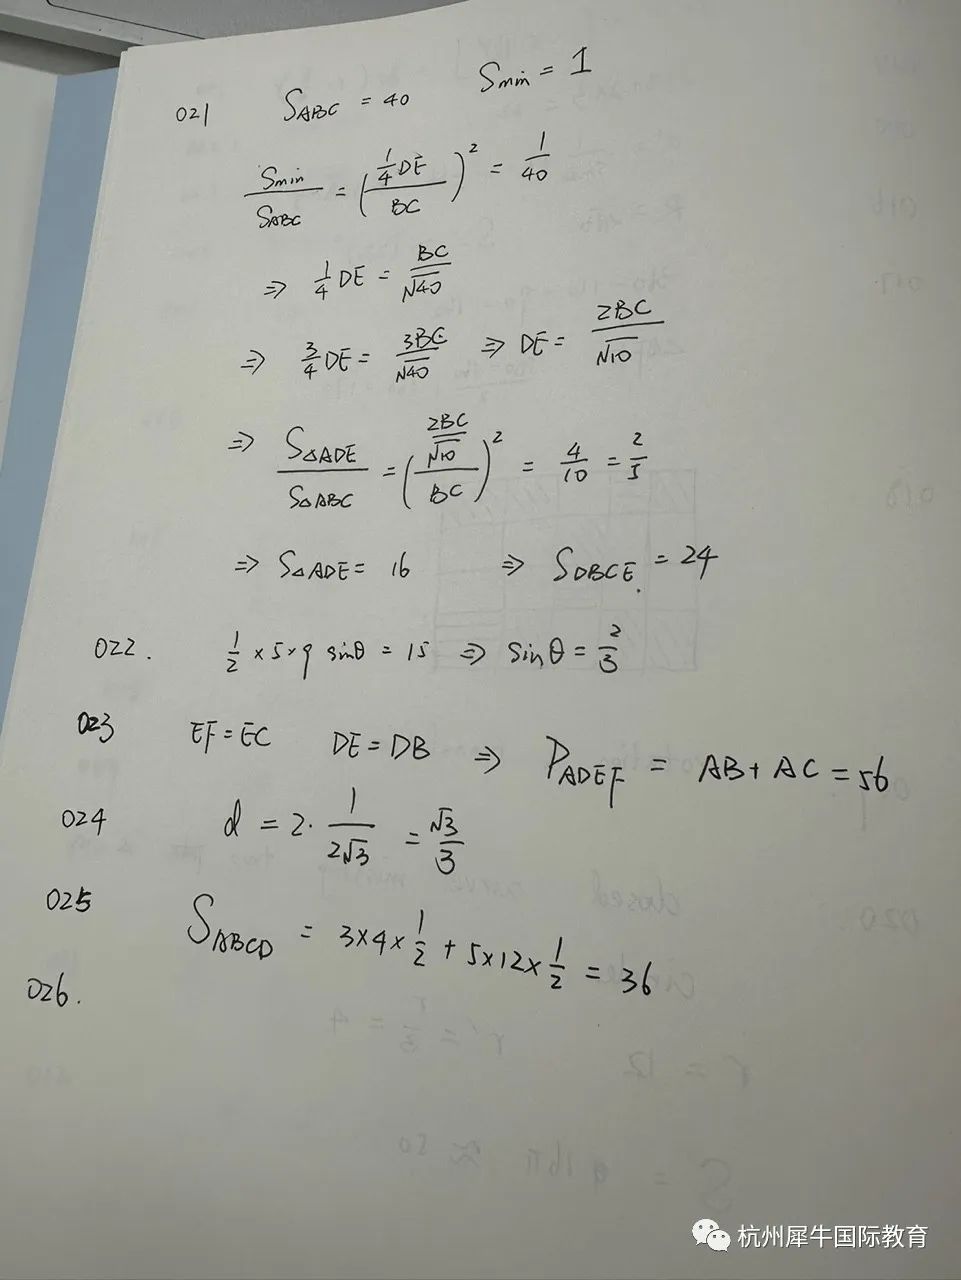 021 S_ABC = 40 S_min = 1
S_min / S_ABC = (1/4 DE / BC)^2 = 1/40
⇒ 1/4 DE = BC / √40
⇒ 3/4 DE = 3BC / √40 ⇒ DE = 2BC / √10
⇒ S_△ADE / S_△ABC = (2BC/√10 / BC)^2 = 4/10 = 2/5
⇒ S_△ADE = 16 ⇒ S_DBCE. = 24
022. 1/2 × 5 × 9 sinθ = 15 ⇒ sinθ = 2/3
023 EF = EC DE = DB ⇒ P_ADEF = AB + AC = 56
024 d = 2 · 1 / 2√3 = √3 / 3
025 S_ABCD = 3×4×1/2 + 5×12×1/2 = 36
026.
杭州犀牛国际教育